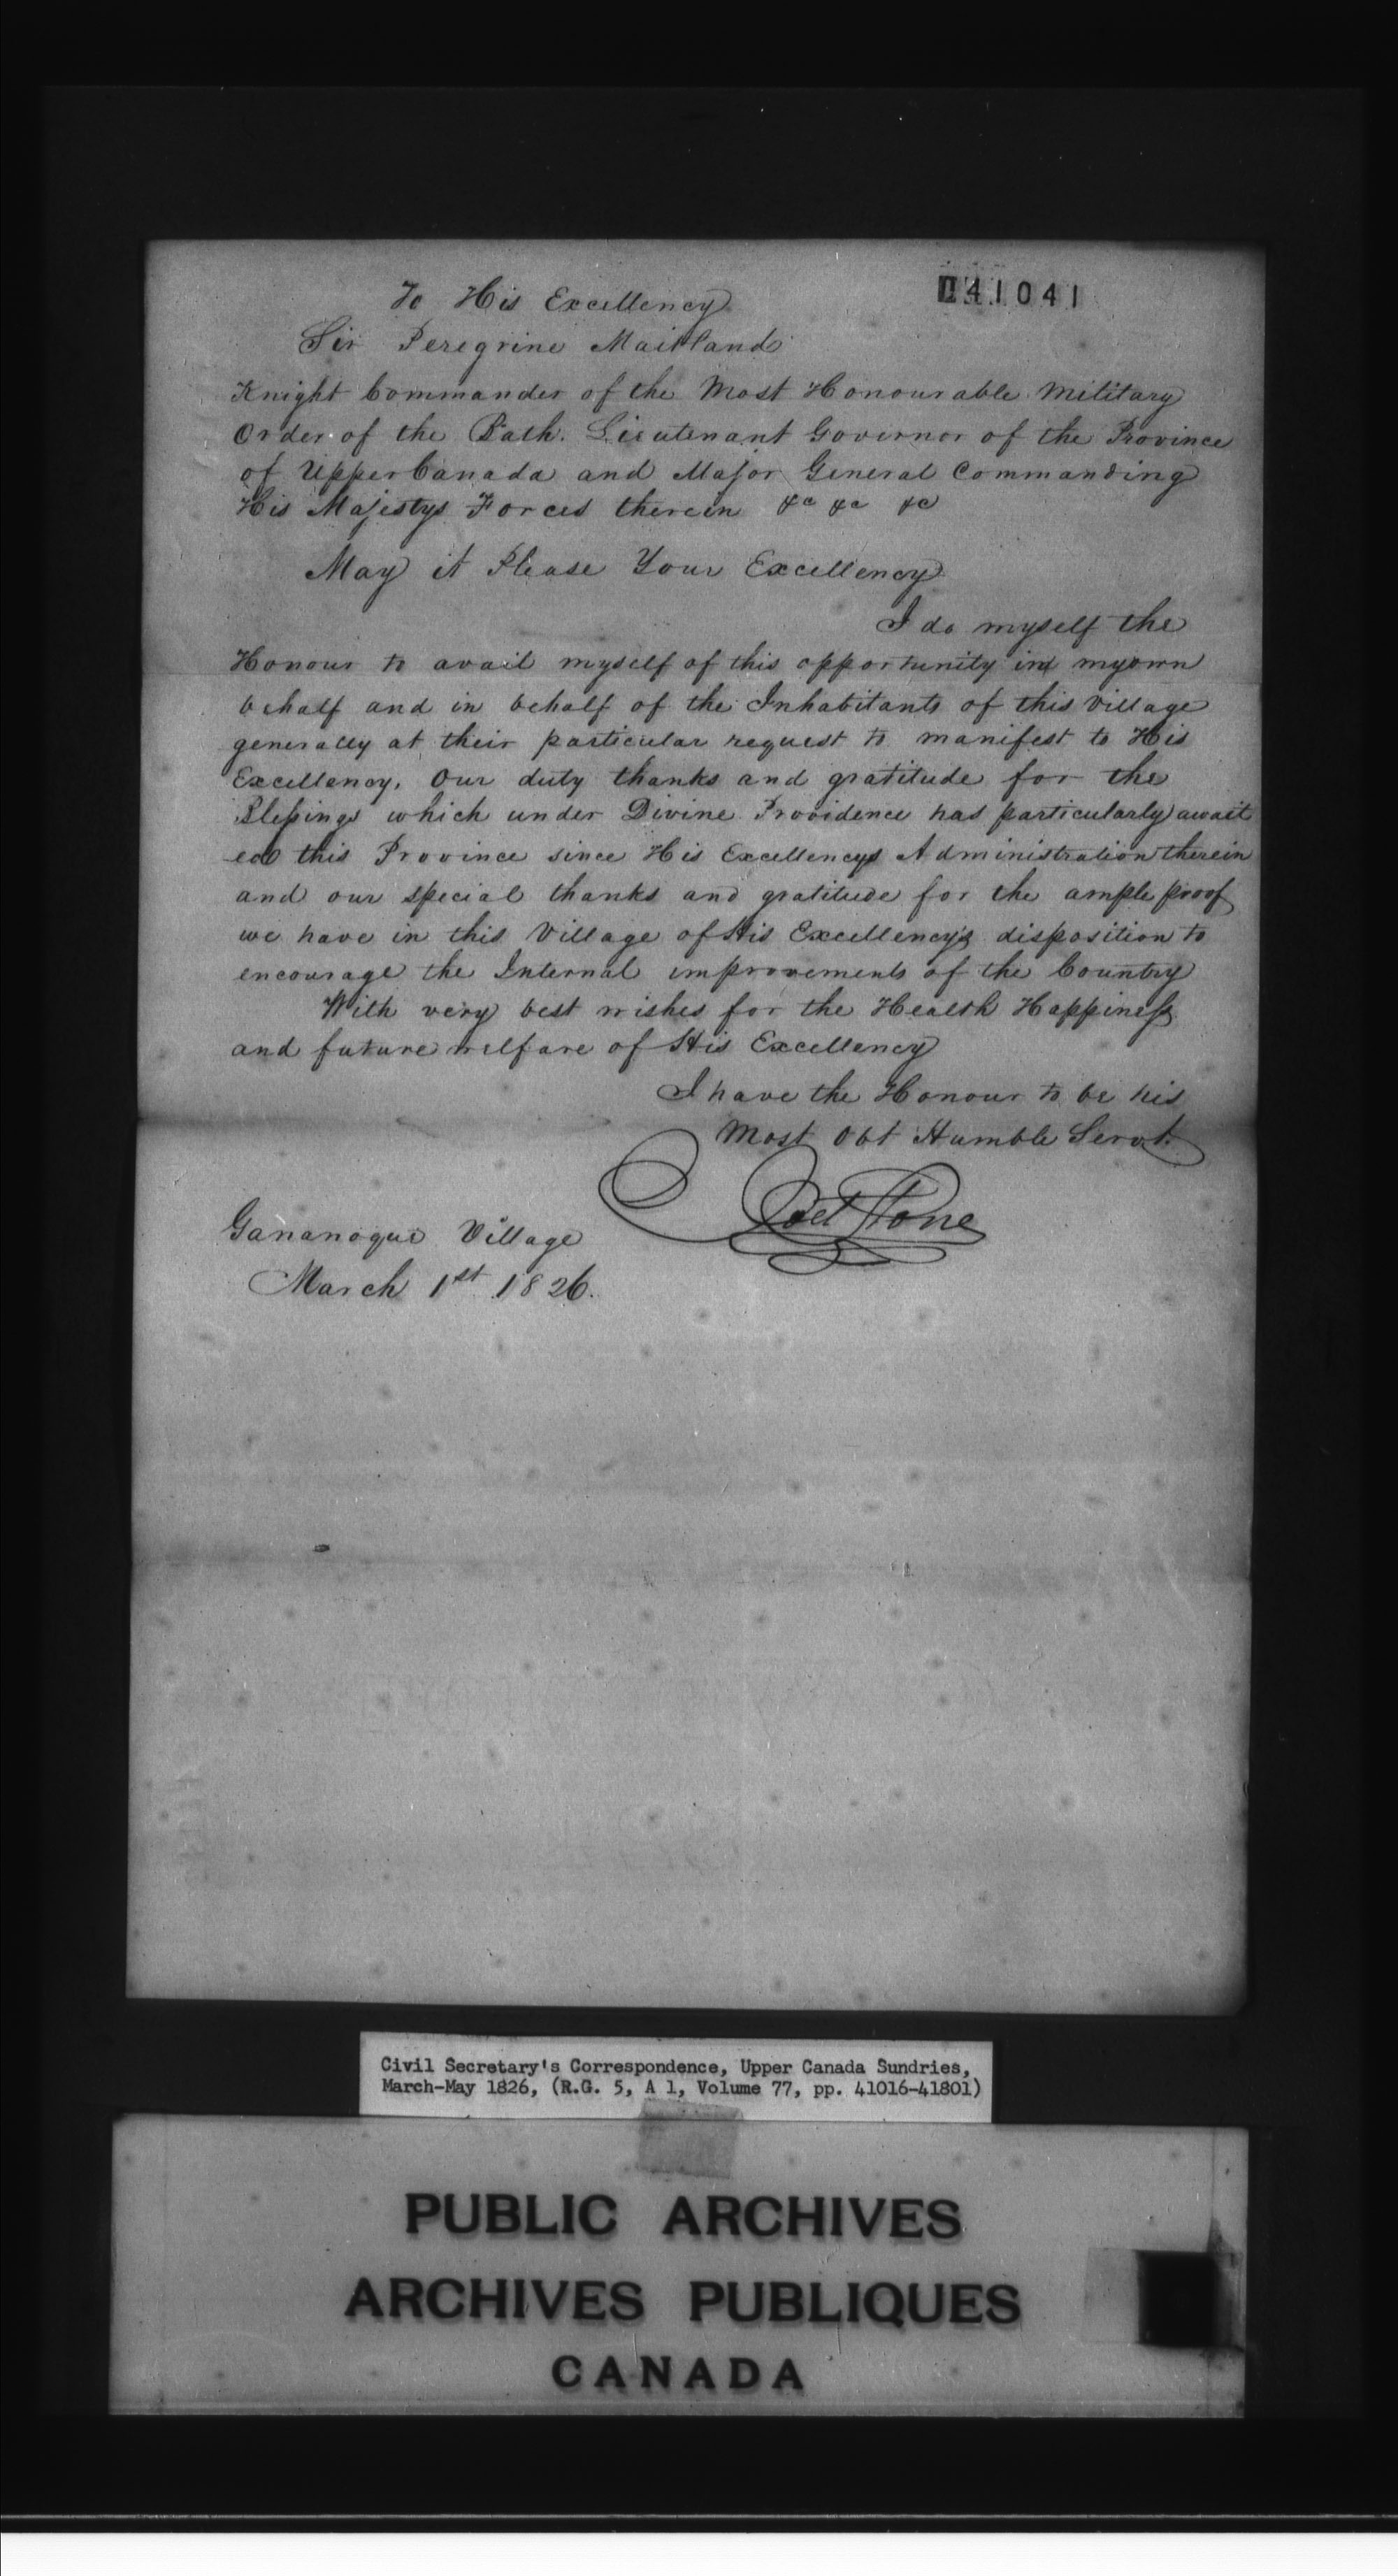 041041
To His Excellency
Sir Peregrine Maitland
Knight Commander of the Most Honourable Military
Order of the Bath. Lieutenant Governor of the Province
of Upper Canada and Major General Commanding
His Majestys Forces therein &c &c &c
May it Please Your Excellency
I do myself the
Honour to avail myself of this opportunity in my own
behalf and in behalf of the Inhabitants of this Village
generally at their particular request to manifest to His
Excellency, Our duty thanks and gratitude for the
Blessings which under Divine Providence has particularly await
ed this Province since His Excellencys Administration therein
and our special thanks and gratitude for the ample proof
we have in this Village of His Excellency's disposition to
encourage the Internal improvements of the Country
With very best wishes for the Health Happiness
and future welfare of His Excellency
I have the Honour to be his
Most Obt Humble Servt.
Joel Stone
Gananoque Village
March 1st 1826.
Civil Secretary's Correspondence, Upper Canada Sundries,
March-May 1826, (R.G. 5, A 1, Volume 77, pp. 41016-41801)
PUBLIC ARCHIVES
ARCHIVES PUBLIQUES
CANADA